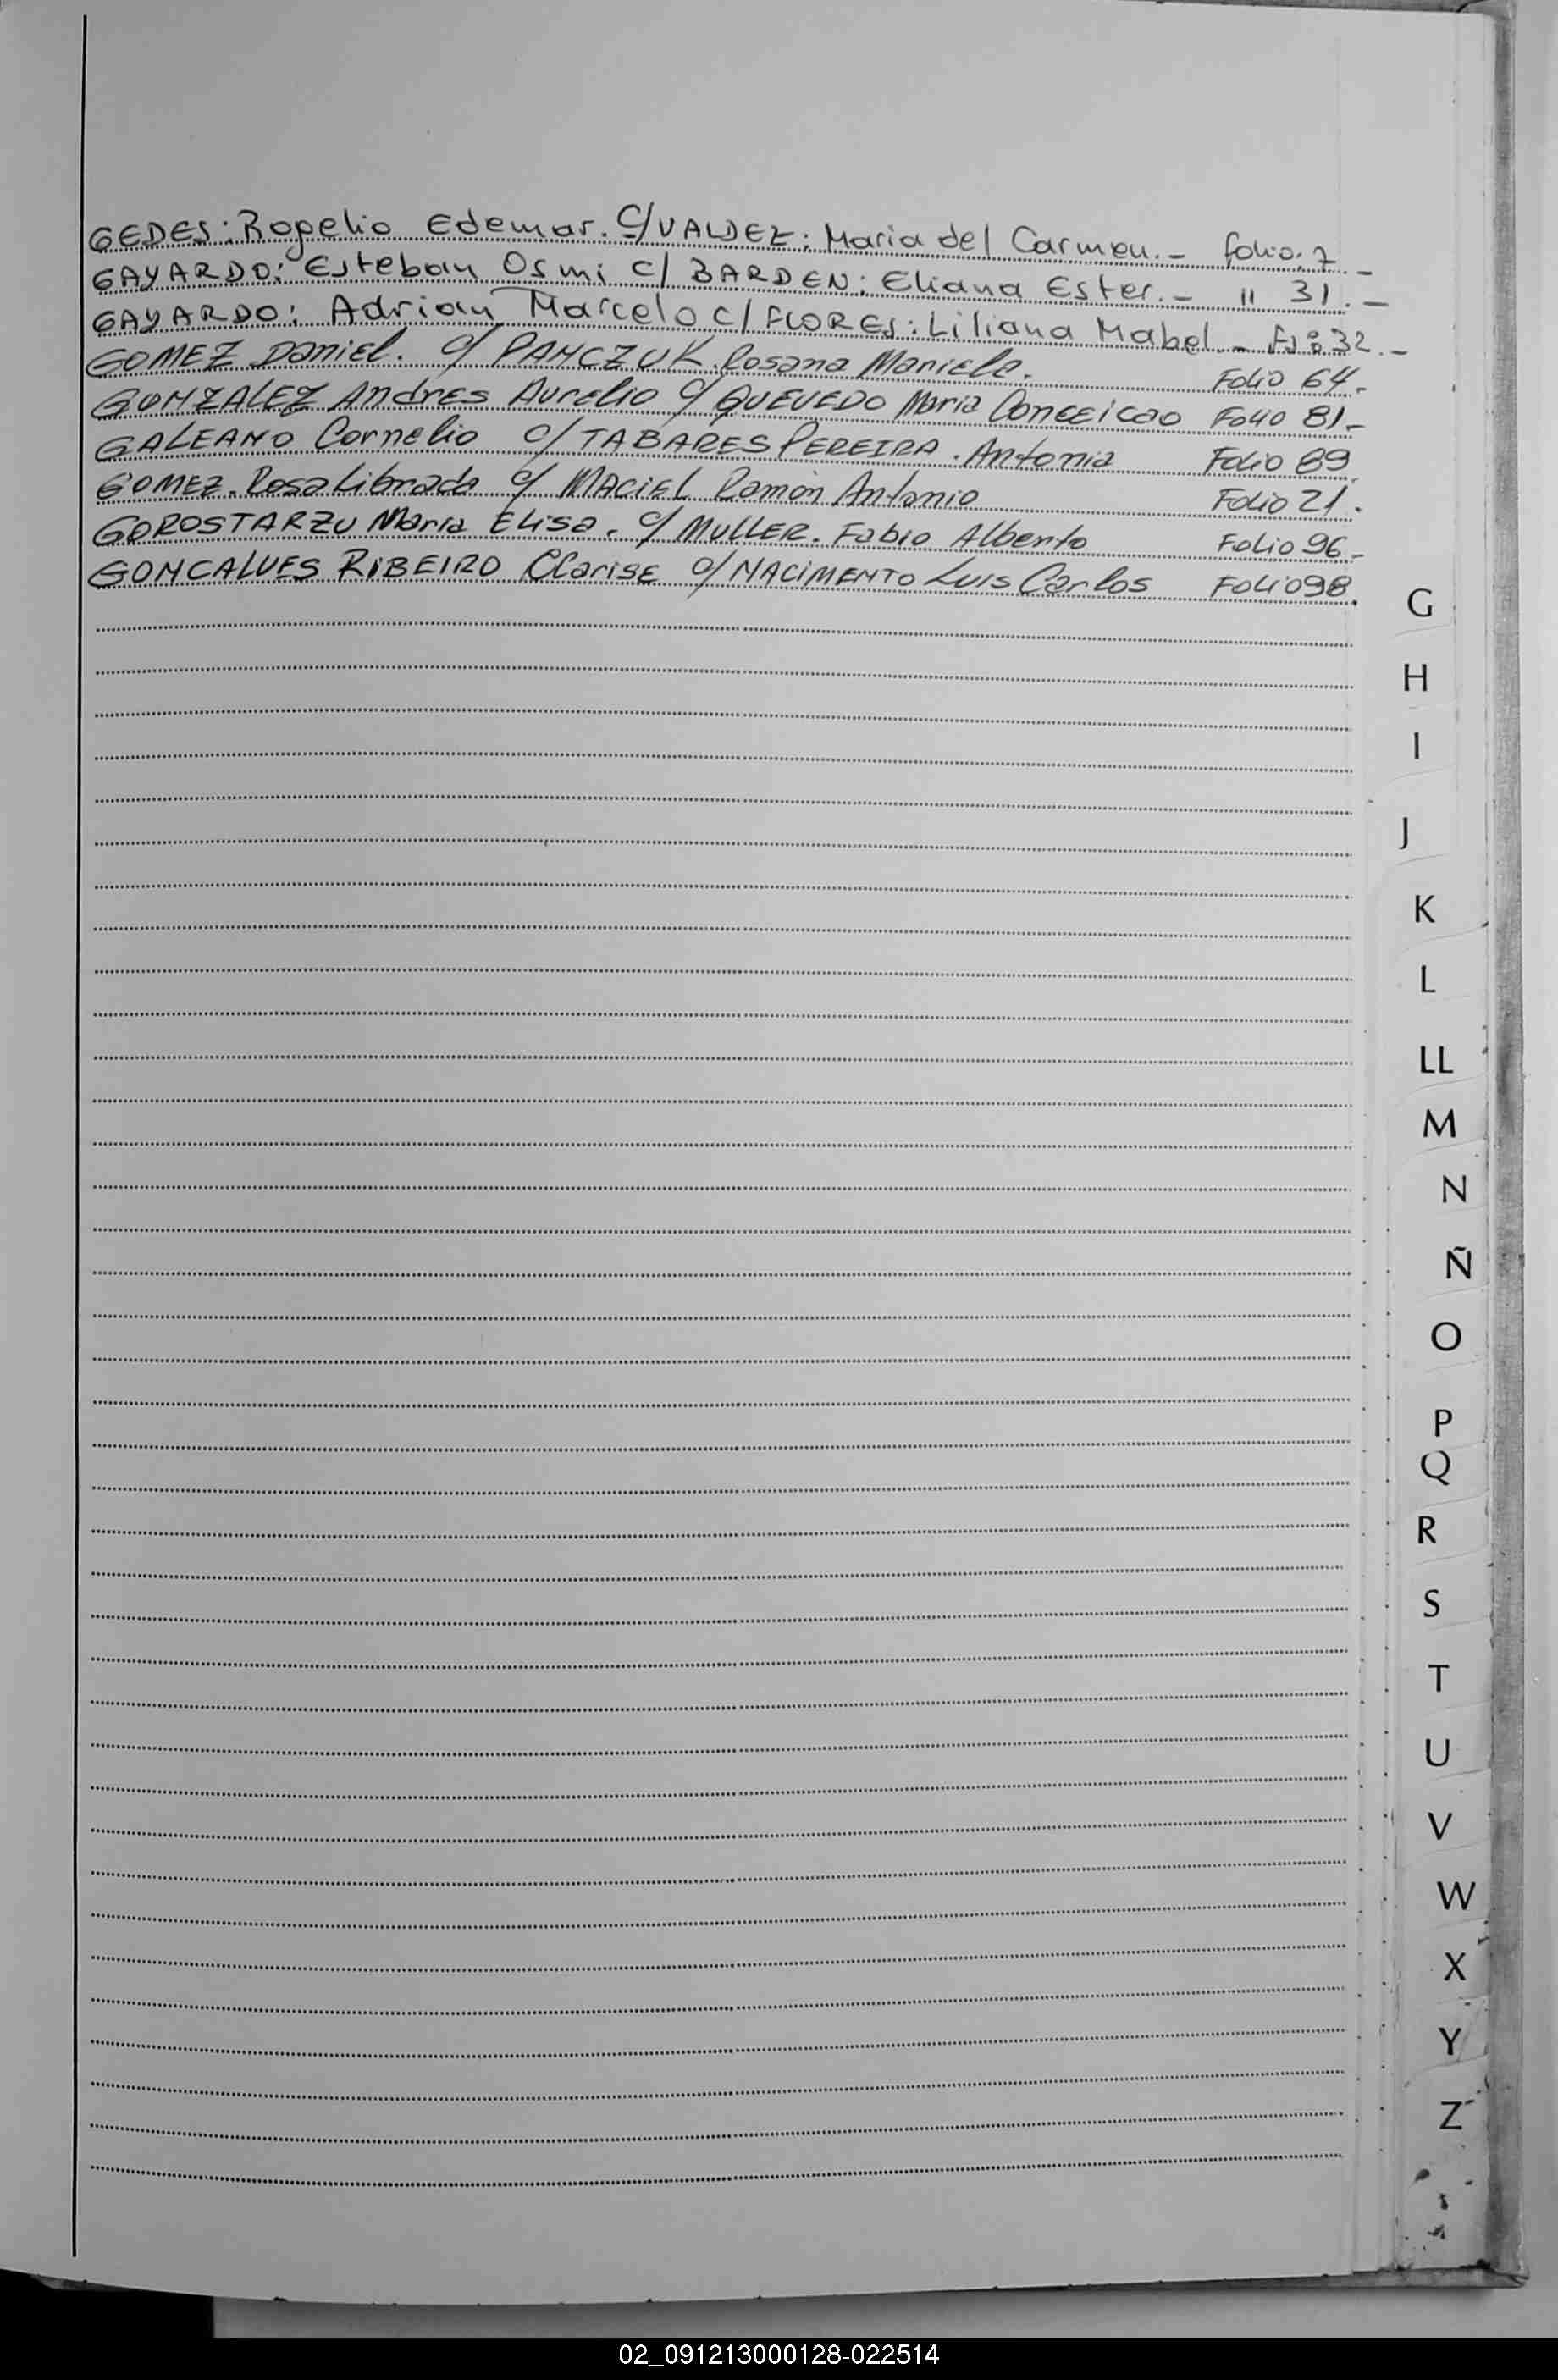 GEDES: Rogelio Edemar. C/VALDEZ: Maria del Carmen.- folio: 7.-
GAYARDO: Esteban Osmi c/ BARDEN: Eliana Ester.- " 31.-
GAYARDO: Adrian Marcelo c/ FLORES: Liliana Mabel - Fs: 32.-
GOMEZ Daniel. c/ PANCZUK Rosana Mariele. Folio 64.-
GONZALEZ Andres Aurelio c/ QUEVEDO Maria Conceicao Folio 81.-
GALEANO Cornelio c/ TABARES PEREIRA. Antonia Folio 89.
GOMEZ. Rosa Librada c/ MACIEL Ramon Antonio Folio 21.
GOROSTARZU Maria Elisa. c/ MULLER. Fabio Alberto Folio 96-
GONCALVES RIBEIRO Clarise c/ NACIMENTO Luis Carlos Folio 98.
G
H
I
J
K
L
LL
M
N
Ñ
O
P
Q
R
S
T
U
V
W
X
Y
Z
02_091213000128-022514